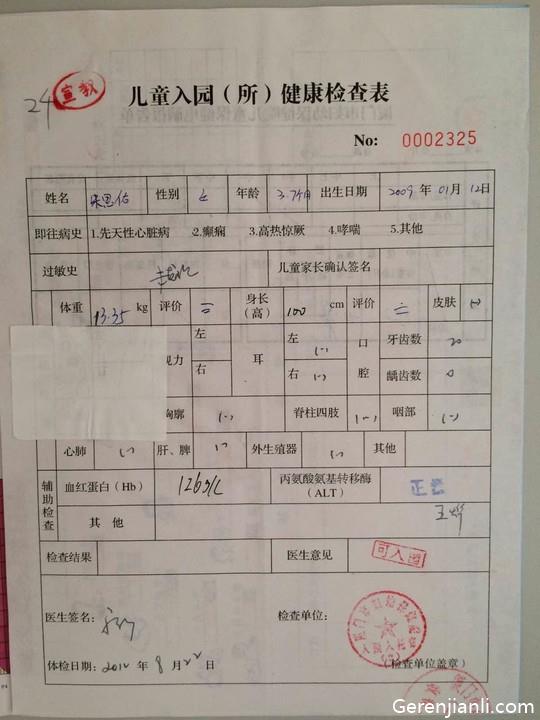 24 宣教
儿童入园（所）健康检查表
No: 0002325
姓名 性别 女 年龄 3.7个月 出生日期 2009 年 01 月 12 日
既往病史 1.先天性心脏病 2.癫痫 3.高热惊厥 4.哮喘 5.其他
过敏史 儿童家长确认签名
体重 13.35 kg 评价 三 身长（高） 100 cm 评价 二 皮肤 (-)
视力 左 耳 左 (-) 口腔 牙齿数 20
右 右 (-) 龋齿数 0
胸廓 (-) 脊柱四肢 (-) 咽部 (-)
心肺 (-) 肝、脾 (-) 外生殖器 (-) 其他
辅助检查 血红蛋白（Hb） 126g/L 丙氨酸氨基转移酶（ALT） 正常
其他
检查结果 医生意见 可入园
医生签名： 检查单位：
体检日期: 2012 年 8 月 22 日 （检查单位盖章）
Gerenjianli.com